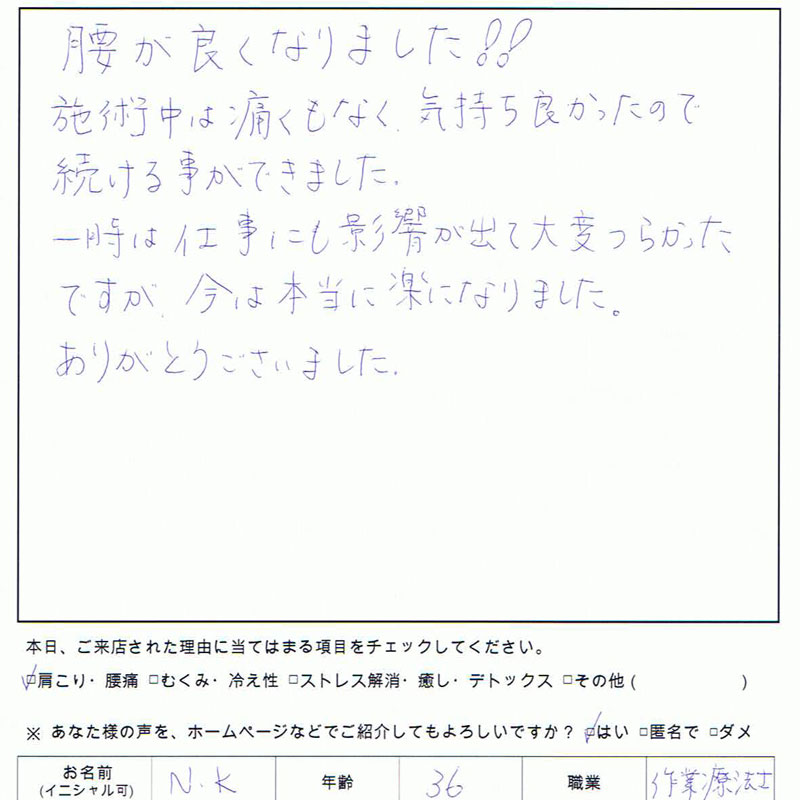 腰が良くなりました!!
施術中は痛くもなく、気持ち良かったので
続ける事ができました.
一時は仕事にも影響が出て大変つらかった
ですが、今は本当に楽になりました。
ありがとうございました.
本日、ご来店された理由に当てはまる項目をチェックしてください。
☑肩こり・腰痛 □むくみ・冷え性 □ストレス解消・癒し・デトックス □その他 ( )
※ あなた様の声を、ホームページなどでご紹介してもよろしいですか? ☑はい □匿名で □ダメ
お名前 (イニシャル可) N.K 年齢 36 職業 作業療法士